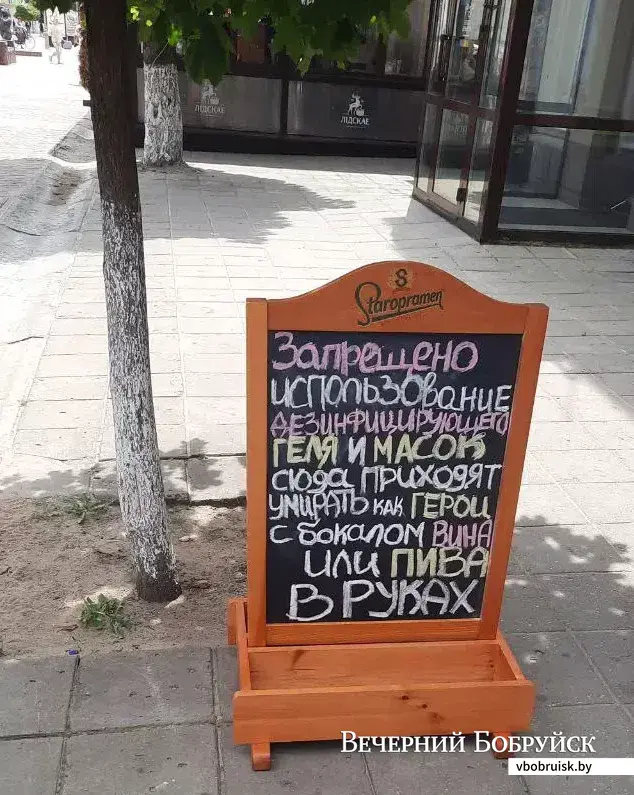 ЛІДСКАЕ
S
Staropramen
Запрещено
использование
дезинфицирующего
ГЕЛЯ И МАСОК
сюда приходят
умирать как ГЕРОИ
с бокалом ВИНА
или ПИВА
В РУКАХ
Вечерний Бобруйск
vbobruisk.by